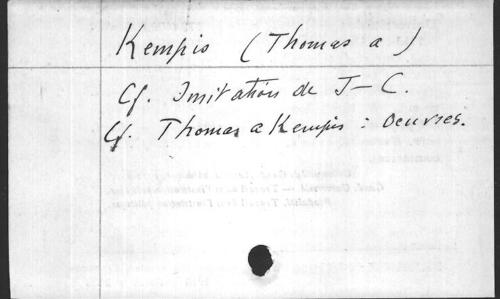 Kempis (Thomas a)
Cf. Imitation de J-C.
Cf. Thomas a Kempis : Oeuvres.